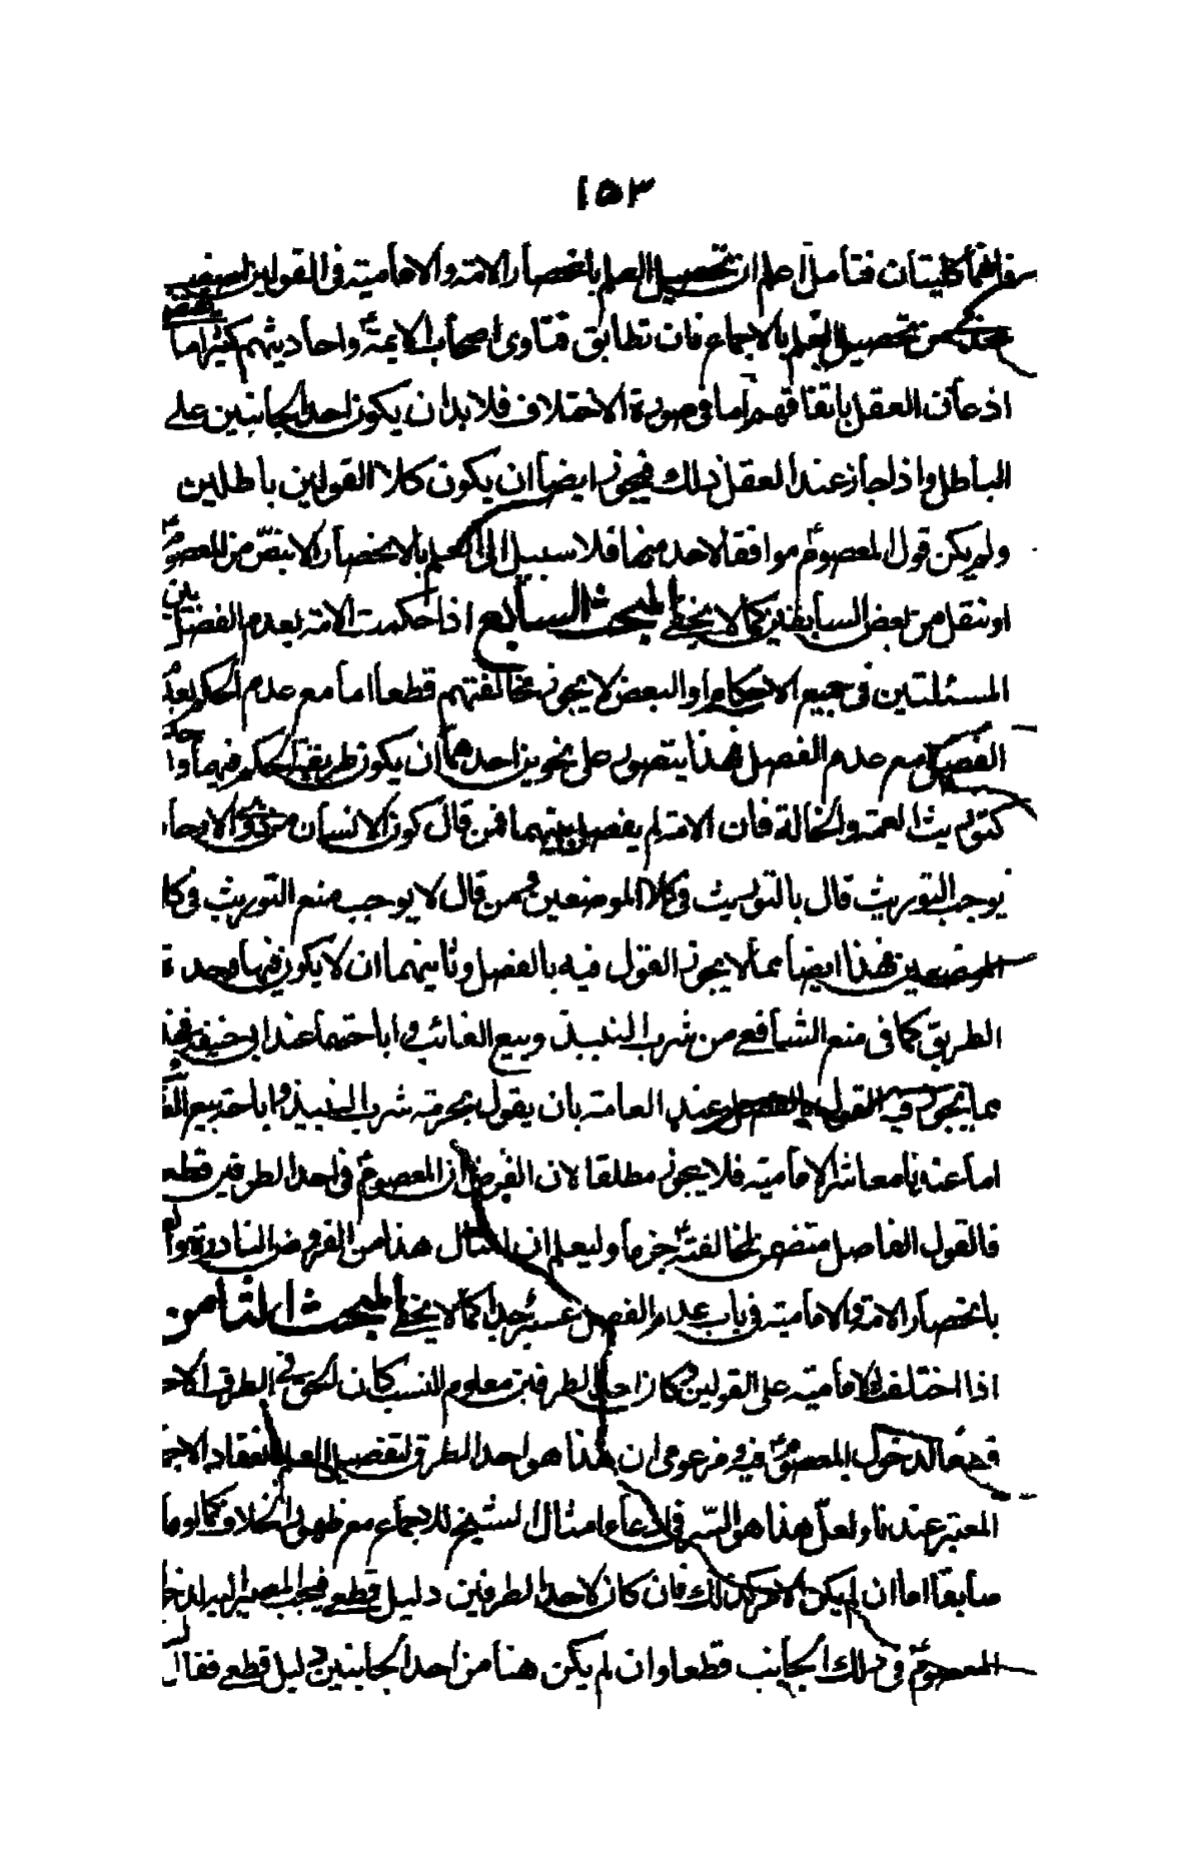 ١٥٣
فانهما كليتان فتأمل اعلم ان تحصيل العلم بانحصار الامة والامامية في القولين اصعب
من تحصيل العلم بالاجماع فان تطابق فتاوى اصحاب الايمة واحاديثهم كثيراما
اذعان العقل باتفاقهم اما في صورة الاختلاف فلا بد ان يكون احد الجانبين على
الباطل واذا جاز عند العقل ذلك فيجوز ايضا ان يكون كلا القولين باطلين
ولم يكن قول المعصوم موافقا لاحد منهما فلا سبيل الى العلم بالانحصار الا بنص من المعصوم
او نقل من بعض السابقين كما لا يخفى المبحث السابع اذا حكمت الامة بعدم الفصل بين
المسئلتين في جميع الاحكام او البعض لا يجوز مخالفتهم قطعا اما مع عدم الحكم بعدم
الفصل مع عدم الفصل فهذا يتصور على نحوين احدهما ان يكون طريقة الحكم فيهما واحدة
كتوريث العمة والخالة فان الامة لم يفصل بينهما فمن قال كون الانسان من ذوى الارحام
يوجب التوريث قال بالتوريث في كلا الموضعين ومن قال لا يوجب منع التوريث في كلا
الموضعين فهذا ايضا مما لا يجوز القول فيه بالفصل وثانيهما ان لا يكون فيها وحدة
الطريق كما في منع الشافعي من شرب النبيذ وبيع الغائب واباحتهما عند ابى حنيفة فهذا
مما يجوز فيه القول بالفصل عند العامة بان يقول بحرمة شرب النبيذ واباحة بيع
اما عندنا معاشر الامامية فلا يجوز مطلقا لان الفرض ان المعصوم في احد الطرفين قطعا
فالقول الفاصل متضمن لمخالفته جزما وليعلم ان امثال هذا من الفروض النادرة
بانحصار الامة والامامية في باب عدم الفصل عسير جدا كما لا يخفى المبحث الثامن
اذا اختلف الامامية على القولين وكان احد الطرفين معلوم النسب كان الحق في الطرف الاخر
قطعا لدخول المعصوم فيه ومزعومى ان هذا هو احد الطرق لتحصيل العلم بانعقاد الاجماع
المعتبر عندنا ولعل هذا هو السر في ادعاء امثال الشيخ للاجماع مع ظهور الخلاف كما لوما
سابقا اما ان لم يكن الامر كذلك فان كان لاحد الطرفين دليل قطعي فيجب المصير اليه لدخول
المعصوم في ذلك الجانب قطعا وان لم يكن هنا من احد الجانبين دليل قطعي فقال